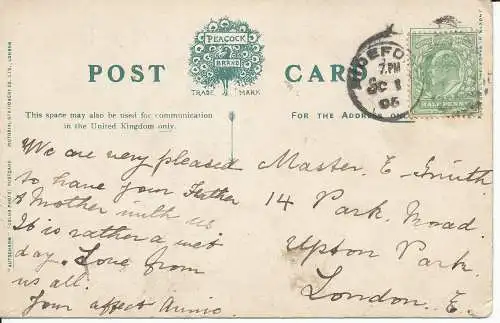 PEACOCK
BRAND
TRADE MARK
POST CARD
This space may also be used for communication
in the United Kingdom only.
FOR THE ADDRESS ONLY
DEFO
7.PM
OC 1
HALFPENNY
We are very pleased
to have your Father
& Mother with us
It is rather a wet
day. Love from
us all.
Your affect Annie.
Master. E. Smith
14 Park. Road.
Upton Park.
London. E.